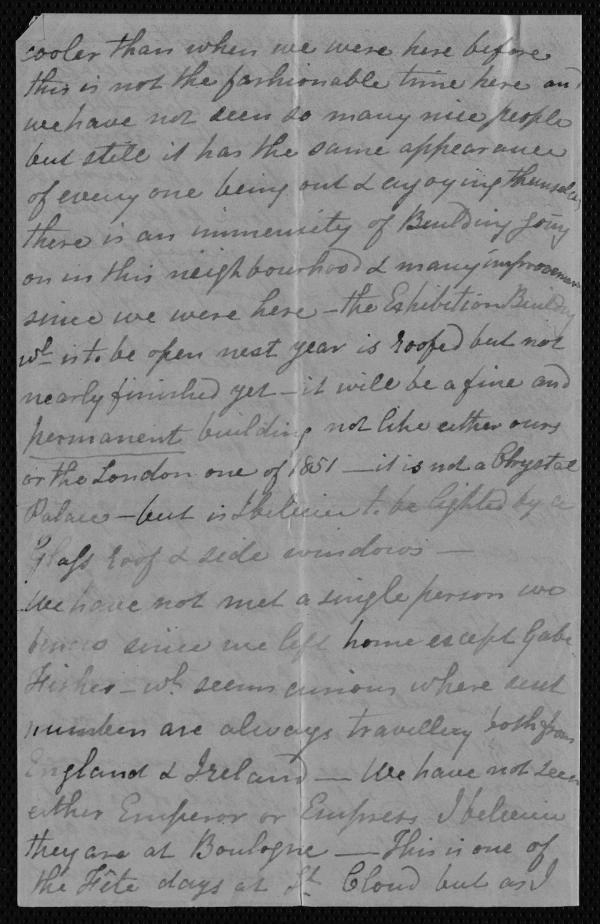 cooler than when we were here before
this is not the fashionable time here and
we have not seen so many nice people
but still it has the same appearance
of every one being out & enjoying themselves
there is an immensity of Building going
on in this neighbourhood & many improvements
since we were here – the Exhibition Building
wh is to be open next year is roofed but not
nearly finished yet – it will be a fine and
permanent building not like either ours
or the London one of 1851 – it is not a Chrystal
Palace – but is I believe to be lighted by a
Glass roof & side windows –
We have not met a single person we
know since we left home except Gabe
Fisher – wh seems curious where such
numbers are always travelling both from
England & Ireland – We have not seen
either Emperor or Empress I believe
they are at Boulogne – This is one of
the Fête days at St Cloud but as I